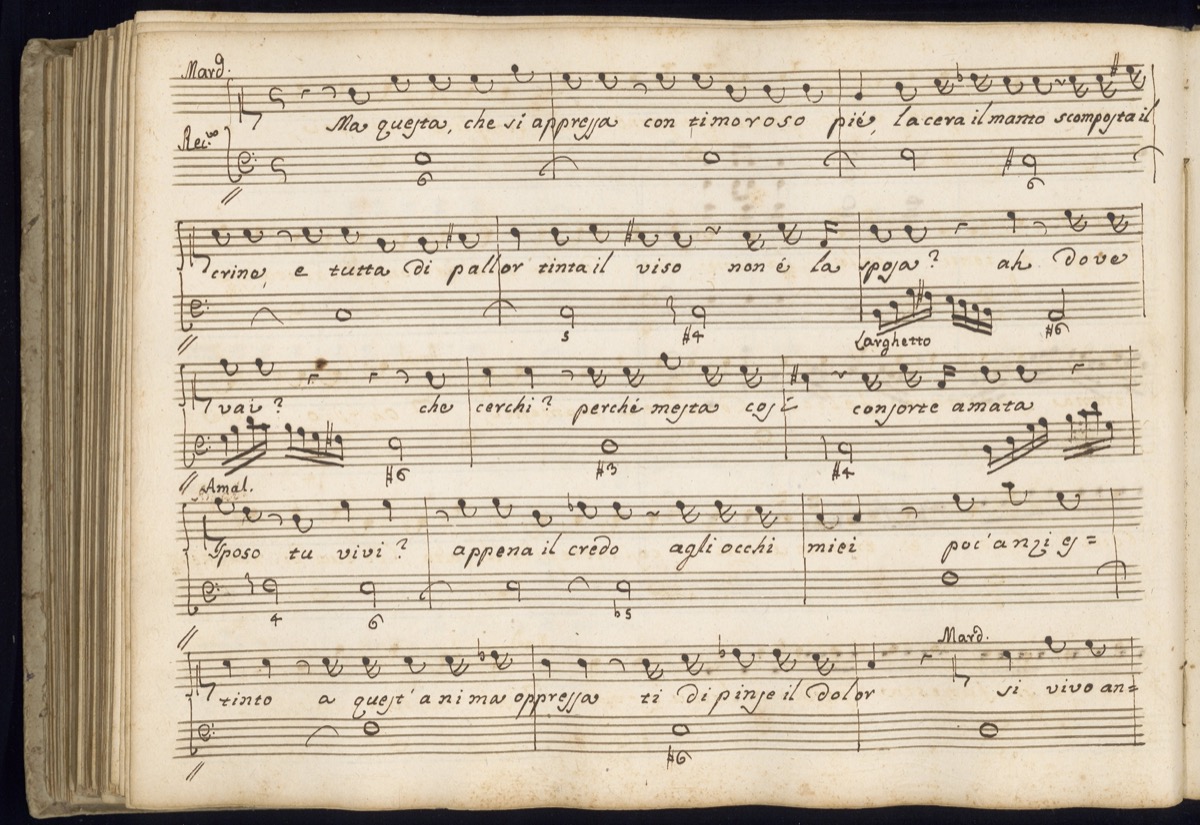 Mard.
Ma questa, che si appressa con timoroso pié, lacera il manto scomposta il
Rec.vo
6 6
crine, e tutta di pallor tinta il viso non é la sposa? ah dove
5 #4 Larghetto #6
vai? che cerchi? perché mesta così consorte amata
#6 #3 #4
Amal.
Sposo tu vivi? appena il credo agli occhi miei poc'anzi es=
4 6 b5
Mard.
tinto a quest'anima oppressa ti dipinse il dolor si vivo an=
#6